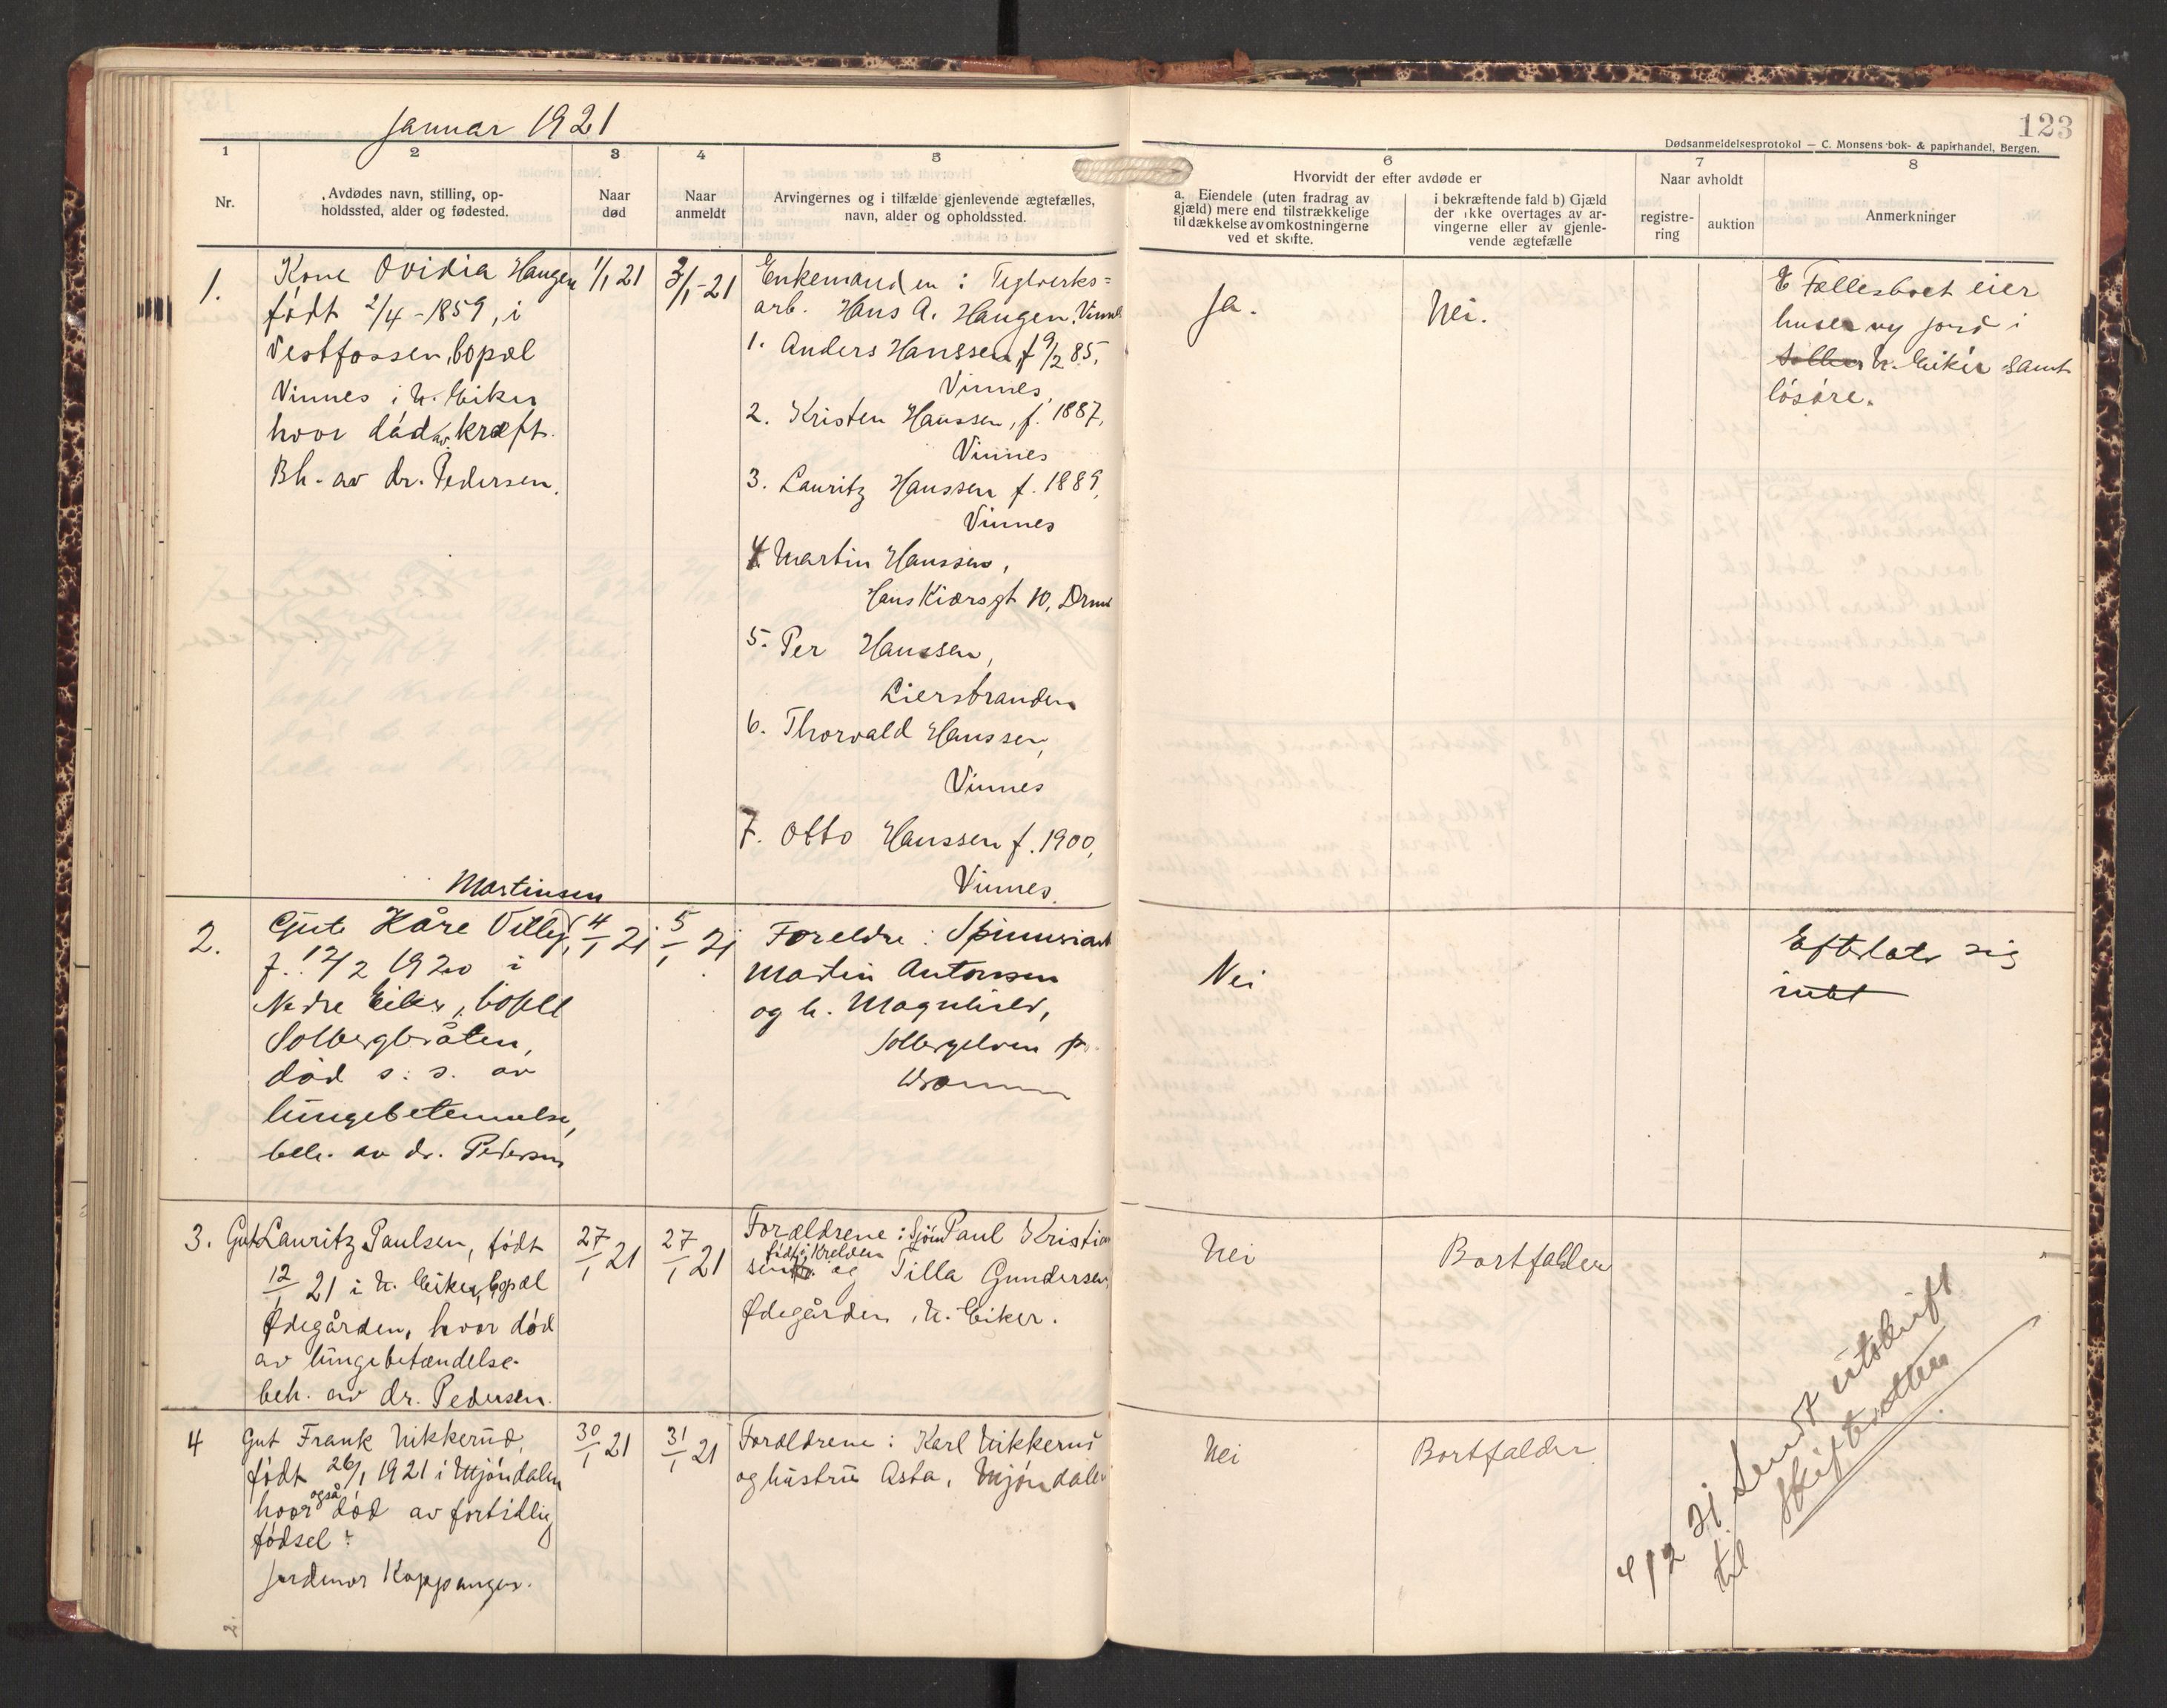 Januar 1921
123
Dødsanmeldelsesprotokol — C. Monsens bok- & papirhandel, Bergen.
1
2
3
4
5
6
7
8
Nr.
Avdødes navn, stilling, op-
holdssted, alder og fødested.
Naar
død
Naar
anmeldt
Arvingernes og i tilfælde gjenlevende ægtefælles,
navn, alder og opholdssted.
Hvorvidt der efter avdøde er
a. Eiendele (uten fradrag av
gjæld) mere end tilstrækkelige
til dækkelse av omkostningerne
ved et skifte.
i bekræftende fald b) Gjæld
der ikke overtages av ar-
vingerne eller av gjenle-
vende ægtefælle
Naar avholdt
registre-
ring
auktion
Anmerkninger
1.
Kone Ovidia Haugen
født 2/4 - 1859, i
Vestfossen, bopæl
Vinnes i N. Eiker
hvor død av kræft.
Bh. av dr. Pedersen.
1/1 21
3/1-21
Enkemanden: Teglverks-
arb. Hans A. Haugen, Vinnes
1. Anders Hanssen f 9/2 85,
Vinnes,
2. Kristen Hanssen, f. 1887,
Vinnes
3. Lauritz Hanssen f. 1889,
Vinnes
4. Martin Hanssen,
Hans Kiærsgt 10, Drm
5. Per Hanssen,
Lierstranden
6. Thorvald Hanssen,
Vinnes
7. Otto Hanssen f. 1900,
Vinnes.
Ja.
Nei.
Fællesboet eier
huse og jord i
N. Eiker samt
løsøre.
2.
Martinsen
Gut Kåre Villy,
f. 12/2 1920 i
Nedre Eiker, bopæl
Solbergbråten,
død s. s. av
lungebetennelse,
beh. av dr. Pedersen
4/1 21
5/1 21
Foreldre:
Martin Antonsen
og h. Magnhild,
Solbergelven p.
Drammen
Nei
Efterlate sig
intet
3.
Gut Lauritz Paulsen, født
12/1 21 i N. Eiker, bopæl
Ødegården, hvor død
av lungebetændelse.
beh. av dr. Pedersen.
27/1 21
27/1 21
Forældrene: Sjöm Paul Kristian
sen og Tilla Gundersen,
Ødegården, N. Eiker.
Nei
Bortfalder
4
Gut Frank Nikkerud,
født 26/1 1921 i Mjøndalen
hvor også død av fortidlig
fødsel.
Jordmor Koppangen.
30/1 21
31/1 21
Forældrene: Karl Nikkerud
og hustru Asta, Mjøndalen
Nei
Bortfalder
4/2 21 Sendt utskrift
til Skifteretten